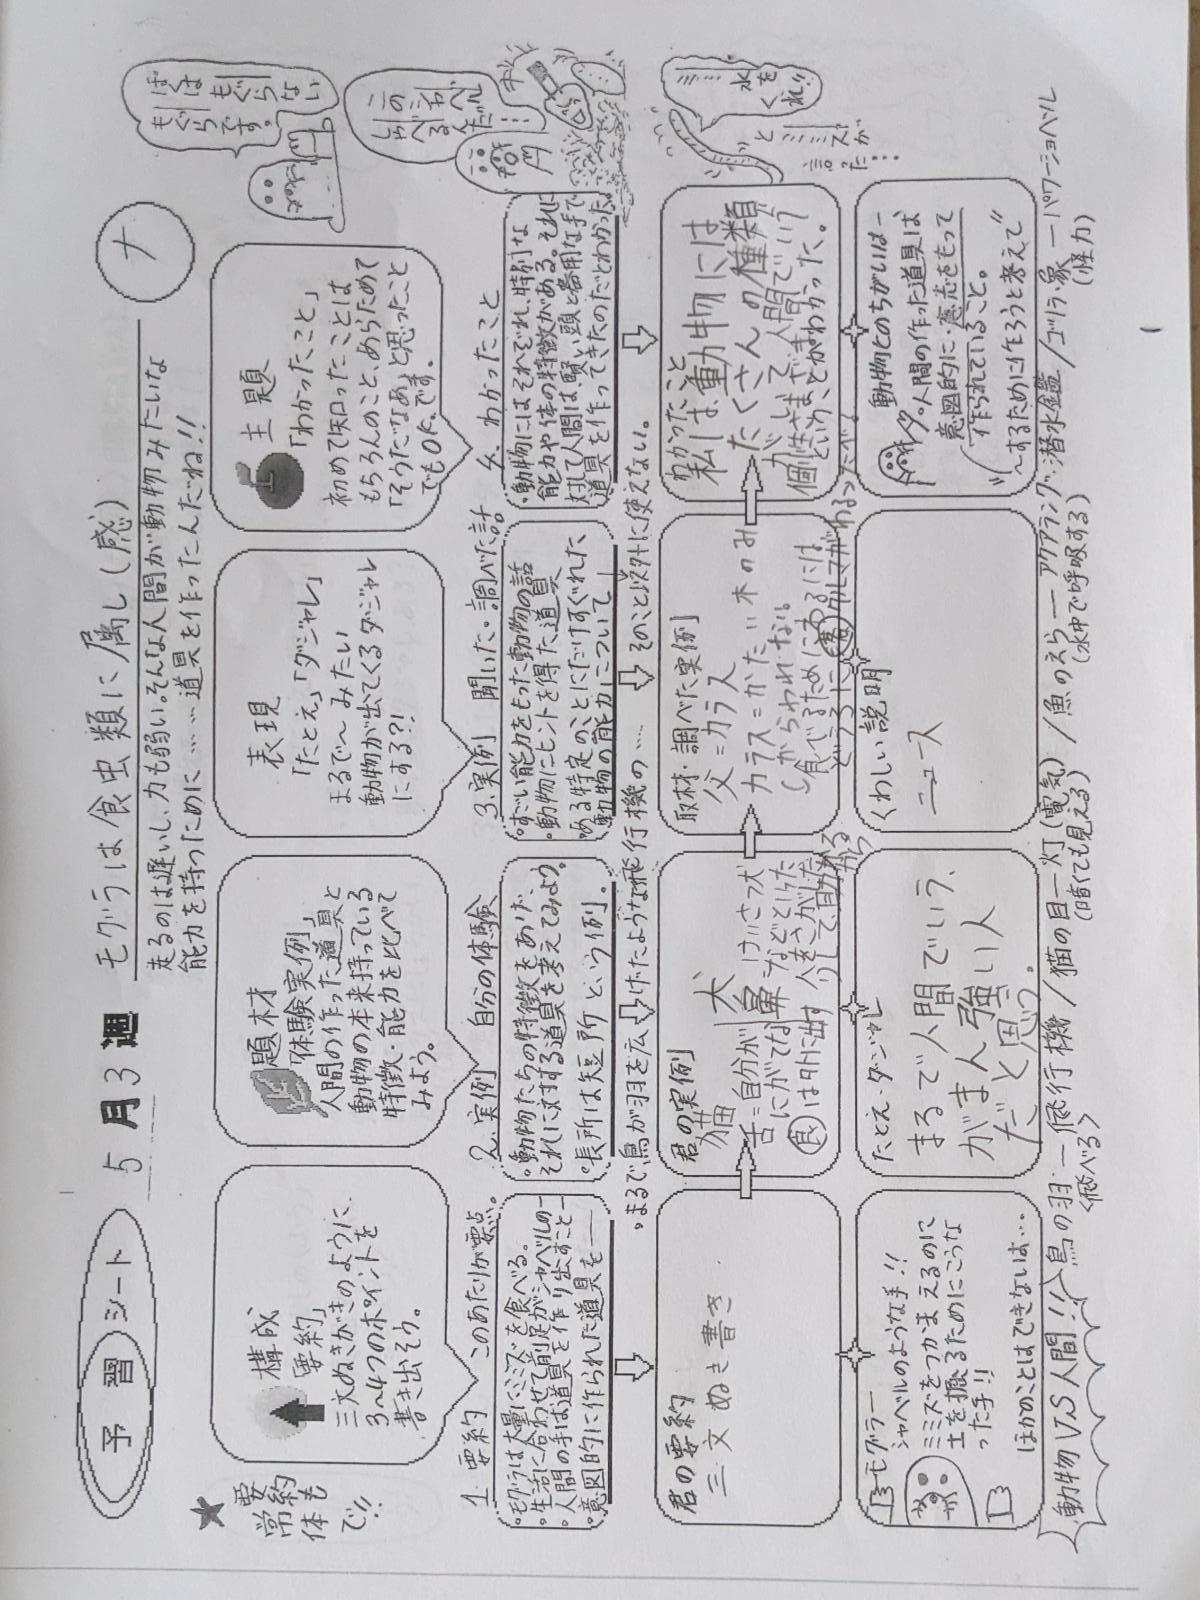 予習シート
5月3週
モグラは食虫類に属し(感)
ナ
走るのは遅いし、力も弱い。そんな人間が動物みたいな
能力を持つために……道具を作ったんだね!!
ぼくは
もぐらない
もぐらです。
★
要約
常体も
で!!
構成
「要約」
三文ぬきがきのように
3〜4つのポイントを
書き出そう。
題材
「体験実例」
人間の作った道具と
動物の本来持っている
特徴・能力を比べて
みよう。
表現
「たとえ」「ダジャレ」
まるで〜みたい
動物が出てくるダジャレ
にする?!
主題
「わかったこと」
初めて知ったことは
もちろんのこと、あらためて
「そうだなあ」と思ったこと
でもOKです。
このシャベル
しゃべるんだ……
1. 要約 このあたりが要点。
・モグラは大量にミミズを食べる。
・生活に合わせて前足がシャベルの―
・人間の手は道具を作り出すこと―
・意図的に作られた道具を――
2. 実例 自分の体験
・動物たちの特徴をあげ、
それに対する道具を考えてみよう。
・長所は短所 という例。
3. 実例 聞いた・調べた話
・すごい能力をもった動物の話
・動物にヒントを得た道具
・ある特定のことにだけすぐれた
動物の能力について―
4. わかったこと
・動物にはそれぞれ、特別な
能力や体の特徴がある。それに
対して人間は、賢い頭と器用な手で
道具を作ってきたのだとわかった。
・まるで、鳥が羽を広げたような飛行機の…… そのこと以外に使えない。
水を
くれ!!
とミミズが
言った…
君の要約
三文ぬき書き
君の実例
猫
舌=自分が
にがてな
食は外に出す
犬
鼻 けいさつ犬
などとして
取材・調べた実例
父=カラス
カラス=かたい木のみ
わかったこと
私は、動物には
たくさんの種類
がいて人間でいう
個性さまざま
ということがわかった。
モグラー
シャベルのような手!!
ミミズをつかまえるのに
土を掘るためにこうな
った手!!
ほかのことはできないは…
たとえ・ダジャレ
まるで人間でいう、
がまん強い人
だと思う。
くわしい説明
ニュース
動物とのちがいは―
人間の作った道具は
意図的に・意志をもって
作られていること。
"〜するために作ろうと考えて"
動物VS人間!!
鳥の羽―飛行機/猫の目―灯(電気)/魚のえら―アクアラング・潜水艦/ゴリラ・象―パワーショベル
<飛べる>
(暗くても見える)
(水中で呼吸する)
(怪力)